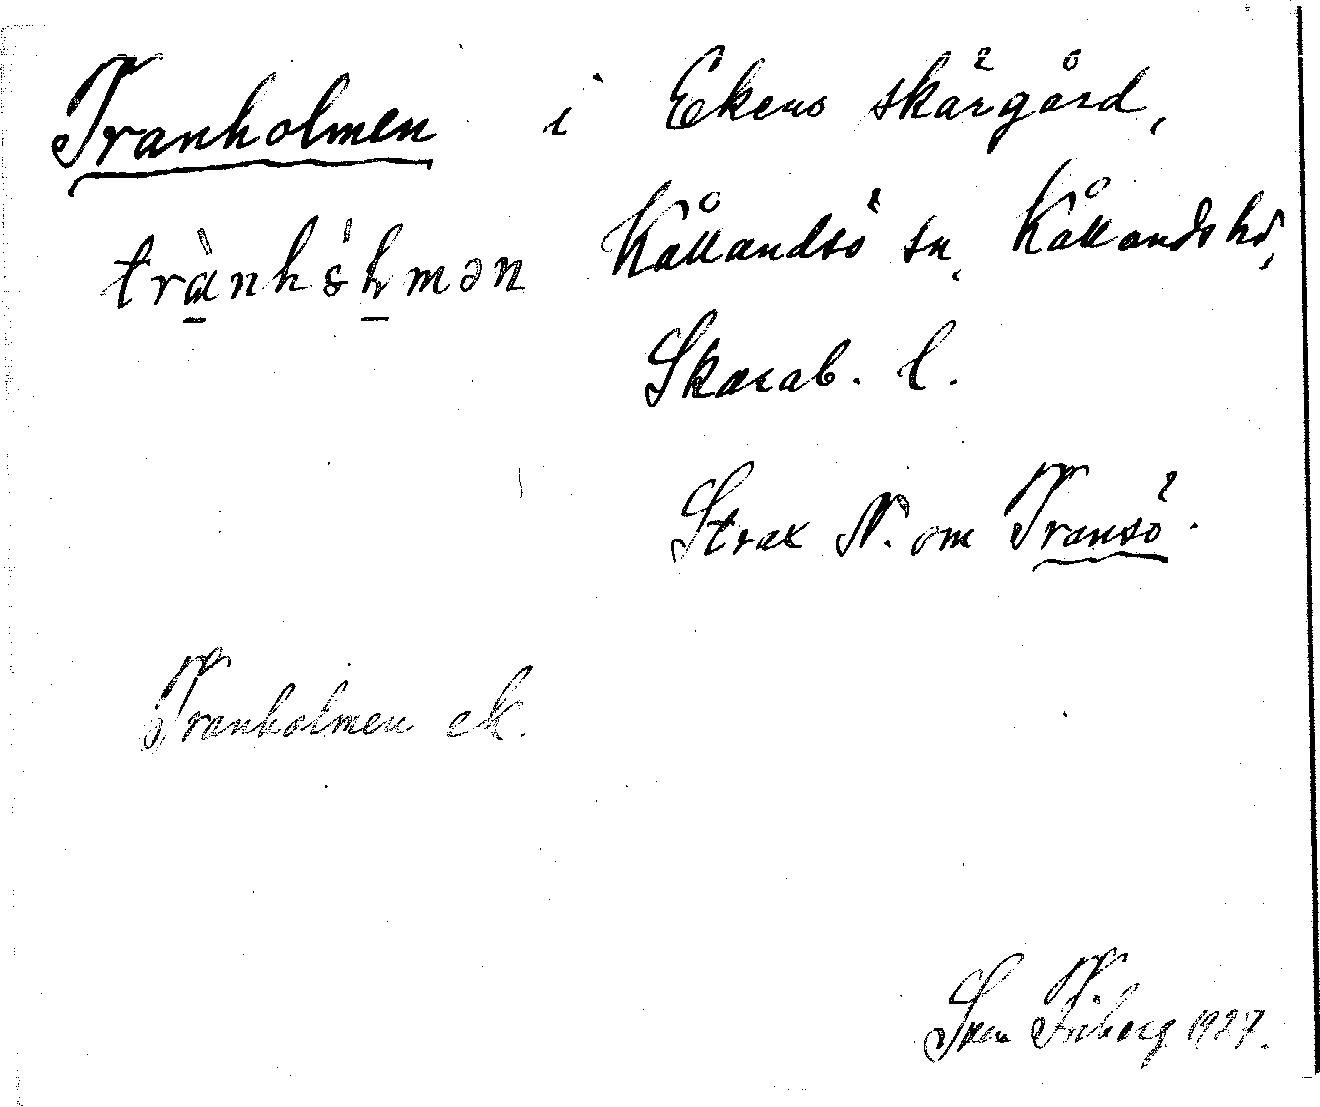 Tranholmen i Ekens skärgård,
trànhólmən Kållandsö sn, Kållands hd,
Skarab. l.
Strax N. om Transö.
Tranholmen ek.
Sven Friberg 1927.